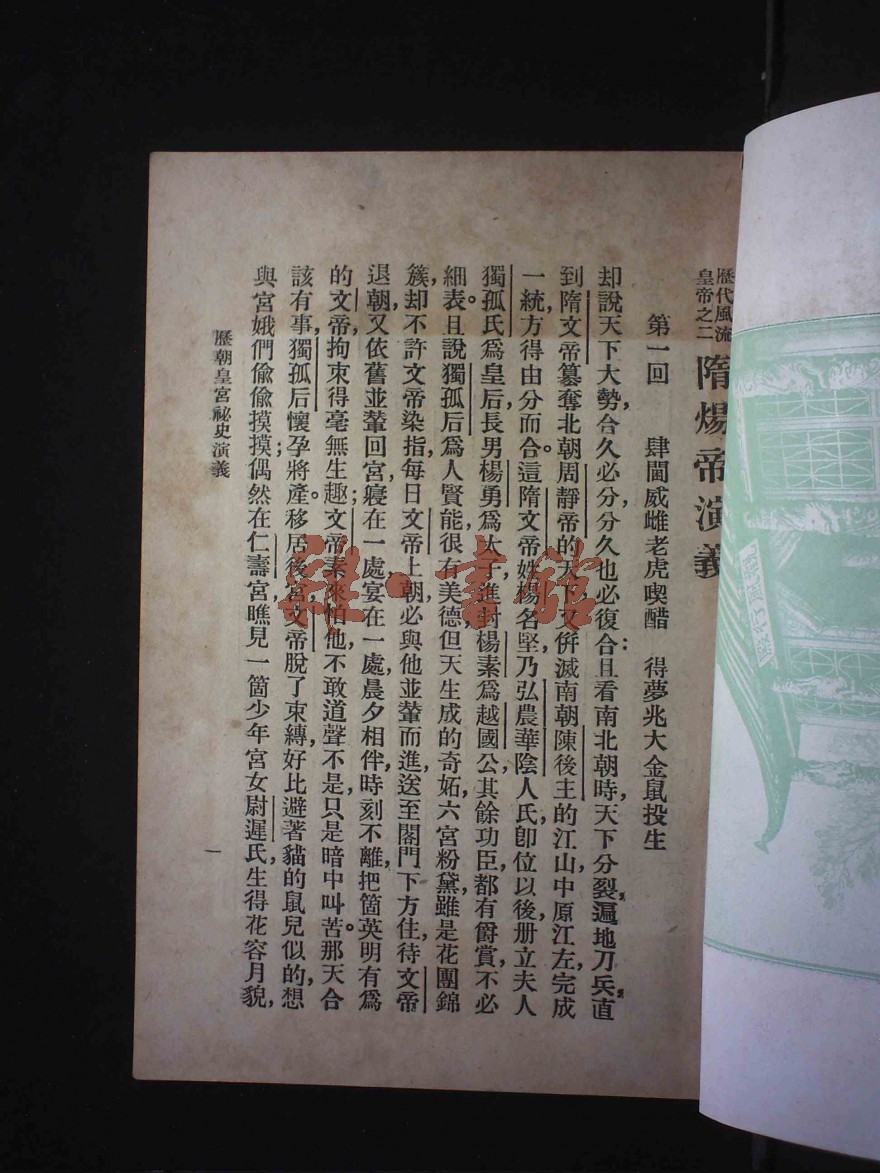 歷代風流
皇帝之二
隋煬帝演義
第一回　肆閫威雌老虎喫醋　得夢兆大金鼠投生
却說天下大勢,合久必分,分久也必復合:且看南北朝時,天下分裂,遍地刀兵,直
到隋文帝篡奪北朝周靜帝的天下,又併滅南朝陳後主的江山,中原江左,完成
一統,方得由分而合。這隋文帝姓楊名堅,乃弘農華陰人氏,卽位以後,册立夫人
獨孤氏爲皇后,長男楊勇爲太子,進封楊素爲越國公,其餘功臣,都有爵賞,不必
細表。且說獨孤后爲人賢能,很有美德,但天生成的奇妬,六宮粉黛,雖是花團錦
簇,却不許文帝染指,每日文帝上朝,必與他並輦而進,送至閤門下方住,待文帝
退朝,又依舊並輦回宮,寢在一處,宴在一處,晨夕相伴,時刻不離,把箇英明有爲
的文帝,拘束得毫無生趣;文帝素來怕他,不敢道聲不是,只是暗中叫苦。那天合
該有事,獨孤后懷孕將產。移居後宮,文帝脫了束縛,好比避著貓的鼠兒似的,想
與宮娥們偸偸摸摸;偶然在仁壽宮,瞧見一箇少年宮女尉遲氏,生得花容月貌,
歷朝皇宮祕史演義
一
雜·書館